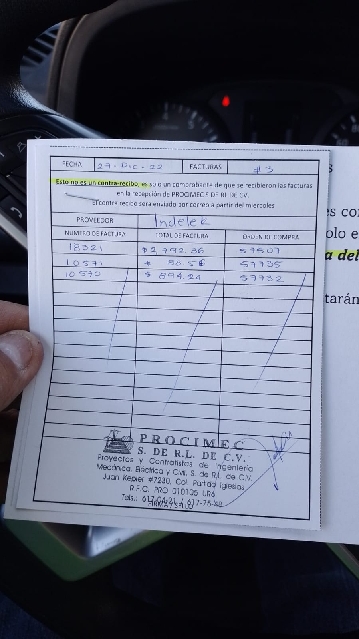 FECHA 27-Dic-22 FACTURAS # 3
Esto no es un contra-recibo, es solo un comprobante de que se recibieron las facturas
en la recepción de PROCIMEC S DE RL DE CV.
El contra recibo será enviado por correo a partir del miercoles
PROVEEDOR Indelek
NUMERO DE FACTURA TOTAL DE FACTURA ORDEN DE COMPRA
18321 $2,792.36 57507
10571 57735
10570 $ 894.24 57732
PROCIMEC
S. DE R.L. DE C.V.
Proyectos y Contratistas de Ingeniería
Mecánica, Eléctrica y Civil, S. de R.L. de C.V.
Juan Kepler #7230, Col. Partido Iglesias
R.F.C. PRO 010105 UR6
Tels.: 617-04-21 / 617-78-38
FIRMA Y SELLO
solo e
a del
tarán